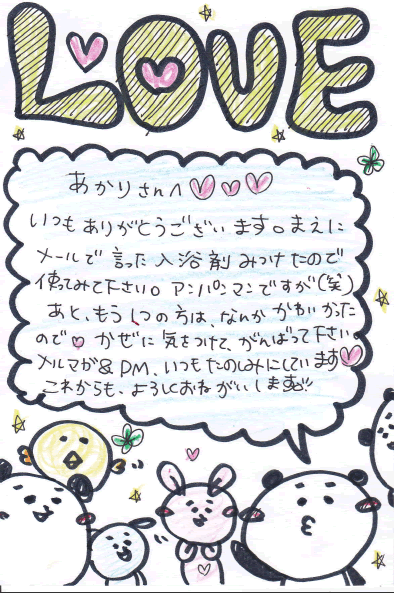 LOVE
あかりさんへ
いつもありがとうございます。まえに
メールで言った入浴剤みつけたので
使ってみて下さい。アンパンマンですが(笑)
あと、もう1つの方は、なんかかわいかった
ので♡かぜに気をつけて、がんばって下さい。
メルマガ&DM、いつもたのしみにしています♡
これからも、よろしくおねがいします!!